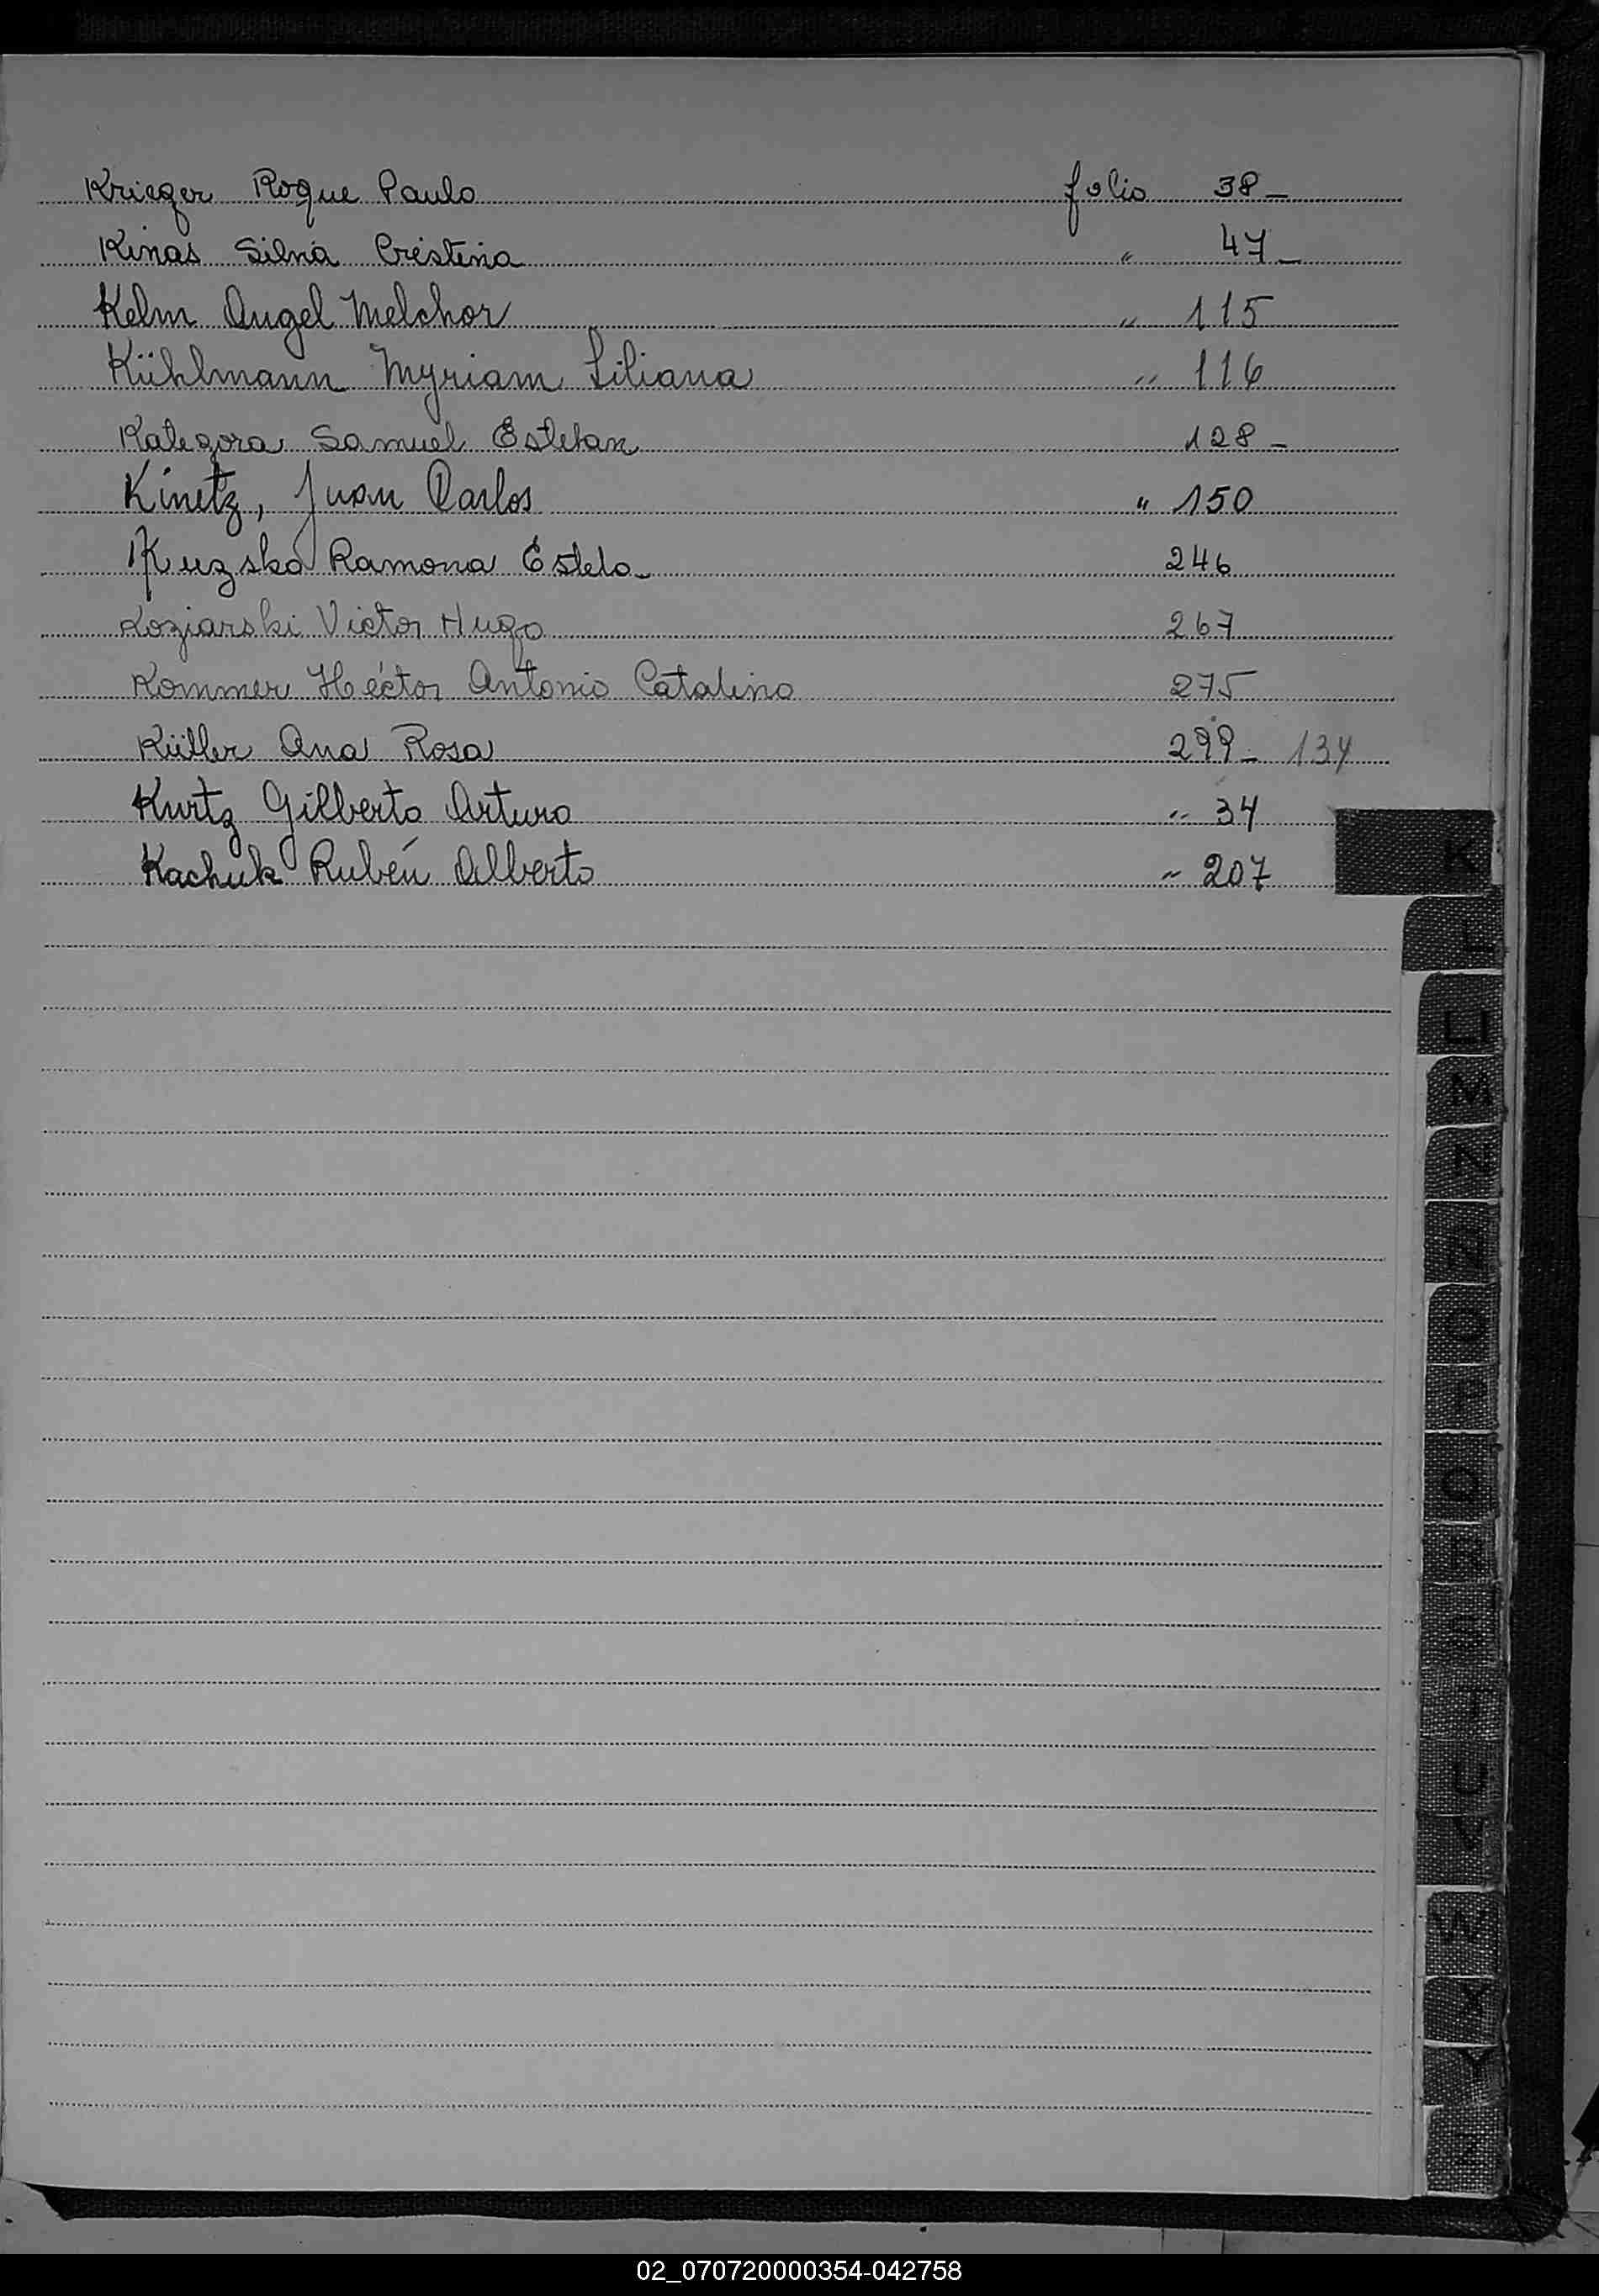 Krieger Roque Paulo folio 38 -
Kinas Silvia Cristina " 47 -
Kelm Angel Melchor " 115
Kühlmann Myriam Liliana " 116
Kategora Samuel Esteban 128 -
Kinetz, Juan Carlos " 150
Kuzska Ramona Estela - 246
Koziarski Victor Hugo 267
Kommer Héctor Antonio Catalino 275
Ana Rosa 299 - 134
Kurtz Gilberto Arturo " 34
Kachuk Rubén Alberto " 207
K
L
LL
M
N
Ñ
O
P
Q
R
S
T
U
V
W
X
Y
Z
02_070720000354-042758